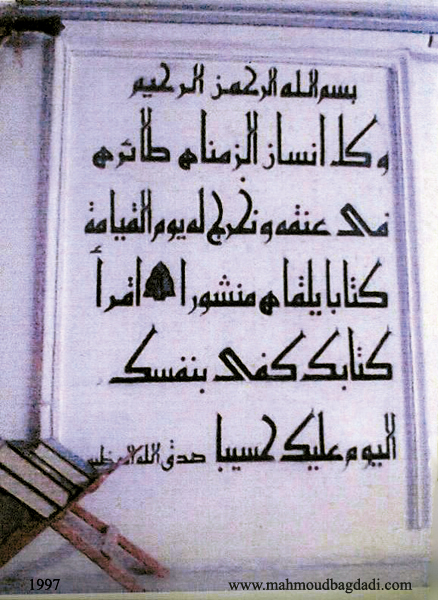 بسم الله الرحمن الرحيم
وكل انسان الزمناه طائره
في عنقه ونخرج له يوم القيامة
كتابا يلقاه منشورا اقرأ
كتابك كفى بنفسك
اليوم عليك حسيبا صدق الله العظيم
1997
www.mahmoudbagdadi.com